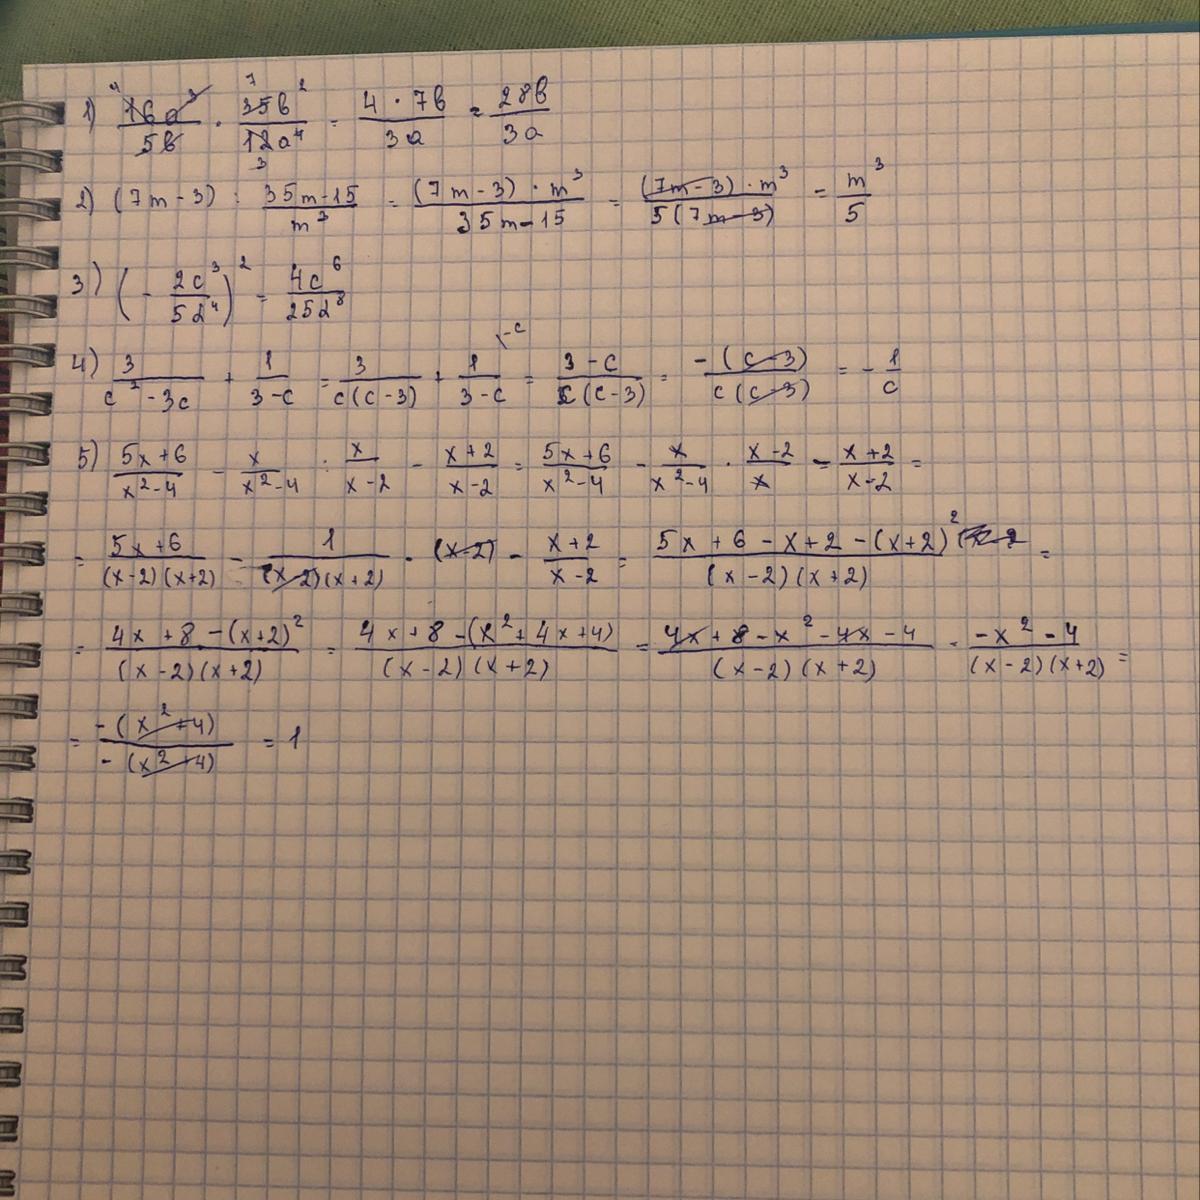 1) 16a³/5b · 35b²/12a⁴ = 4 · 7b/3a = 28b/3a
2) (7m-3) : 35m-15/m³ = (7m-3) · m³/35m-15 = (7m-3) · m³/5(7m-3) = m³/5
3) (- 2c³/5d⁴)² = 4c⁶/25d⁸
4) 3/c²-3c + 1/3-c = 3/c(c-3) + 1\-c/3-c = 3-c/c(c-3) = -(c-3)/c(c-3) = - 1/c
5) 5x+6/x²-4 - x/x²-4 : x/x-2 - x+2/x-2 = 5x+6/x²-4 - x/x²-4 · x-2/x - x+2/x-2 =
= 5x+6/(x-2)(x+2) - 1/(x-2)(x+2) · (x-2) - x+2/x-2 = 5x+6-x+2-(x+2)²/(x-2)(x+2) =
= 4x+8-(x+2)²/(x-2)(x+2) = 4x+8-(x²+4x+4)/(x-2)(x+2) = 4x+8-x²-4x-4/(x-2)(x+2) = -x²-4/(x-2)(x+2) =
= -(x²+4)/-(x²+4) = 1